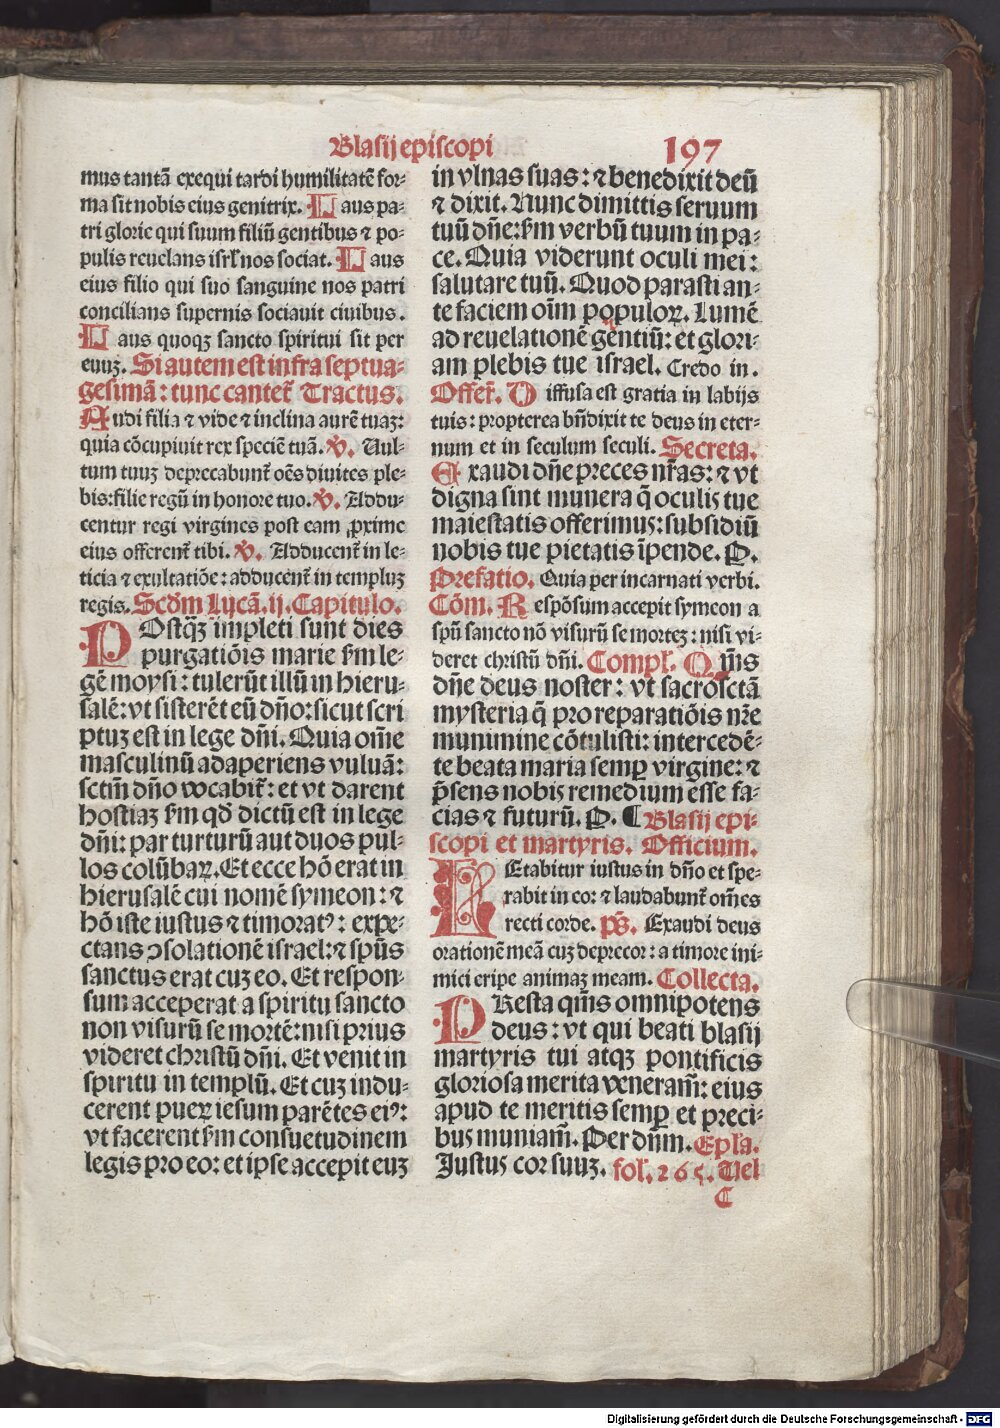 Blasij episcopi 197
mus tantā exequi tardi humilitatē for-
ma sit nobis eius genitrix. Laus pa-
tri glorie qui suum filiū gentibus ⁊ po-
pulis reuelans isrl̄ nos sociat. Laus
eius filio qui suo sanguine nos patri
concilians supernis sociauit ciuibus.
Laus quoqꝫ sancto spiritui sit per
euuꝫ. Si autem est infra septua-
gesimā: tunc cantet᷑ Tractus.
Audi filia ⁊ vide ⁊ inclina aurē tuaꝫ:
quia cōcupiuit rex speciē tuā. ℣. Uul-
tum tuuꝫ deprecabunt᷑ oēs diuites ple-
bis: filie regū in honore tuo. ℣. Addu-
centur regi virgines post eam ꝓxime
eius offerent᷑ tibi. ℣. Adducent᷑ in le-
ticia ⁊ exultatiōe: adducent᷑ in templuꝫ
regis. Scdꝫm Lucā. ij. Capitulo.
POstqꝫ̄ impleti sunt dies
purgatiōis marie ẜm le-
gē moysi: tulerūt illū in hieru-
salē: vt sisterēt eū dño: sicut scri
ptuꝫ est in lege dñi. Quia om̄e
masculinū adaperiens vuluā:
sctm̄ dño vocabit᷑: et vt darent
hostiaꝫ ẜm qd̄ dictū est in lege
dñi: par turturū aut duos pul-
los colūbaꝝ. Et ecce hō erat in
hierusalē cui nomē symeon: ⁊
hō iste iustus ⁊ timoratꝰ: expe-
ctans ↄsolationē israel: ⁊ spūs
sanctus erat cuꝫ eo. Et respon-
sum acceperat a spiritu sancto
non visurū se mortē: nisi prius
videret christū dñi. Et venit in
spiritu in templū. Et cuꝫ indu-
cerent pueꝝ iesum parētes eiꝰ:
vt facerent ẜm consuetudinem
legis pro eo: et ipse accepit euꝫ
in vlnas suas: ⁊ benedixit deū
⁊ dixit. Nunc dimittis seruum
tuū dñe: ẜm verbū tuum in pa-
ce. Quia viderunt oculi mei:
salutare tuū. Quod parasti an-
te faciem oīm populoꝝ. Lumē
ad reuelationē gentiū: et glori-
am plebis tue israel. Credo in.
Offert᷑. Diffusa est gratia in labijs
tuis: propterea bn̄dixit te deus in eter-
num et in seculum seculi. Secreta.
Exaudi dñe preces nr̄as: ⁊ vt
digna sint munera q̄ oculis tue
maiestatis offerimus: subsidiū
nobis tue pietatis īpende. P.
Prefatio. Quia per incarnati verbi.
Cōm. Respōsum accepit symeon a
spū sancto nō visurū se morteꝫ: nisi vi-
deret christū dñi. Compl᷑. Qūis
dñe deus noster: vt sacrosctā
mysteria q̄ pro reparatiōis nr̄e
munimine cōtulisti: intercedē-
te beata maria semꝑ virgine: ⁊
p̄sens nobis remedium esse fa-
cias ⁊ futurū. P. ¶ Blasij epi-
scopi et martyris. Officium.
LEtabitur iustus in dño et spe-
rabit in eo: ⁊ laudabunt᷑ om̄es
recti corde. pš. Exaudi deus
orationē meā cuꝫ deprecor: a timore ini-
mici eripe animaꝫ meam. Collecta.
PResta qūis omnipotens
deus: vt qui beati blasij
martyris tui atqꝫ pontificis
gloriosa merita veneram̄: eius
apud te meritis semꝑ et preci-
bus muniam̄. Per dñm. Epl̄a.
Iustus cor suuꝫ. fol᷑. 265. Uel
C
Digitalisierung gefördert durch die Deutsche Forschungsgemeinschaft - DFG